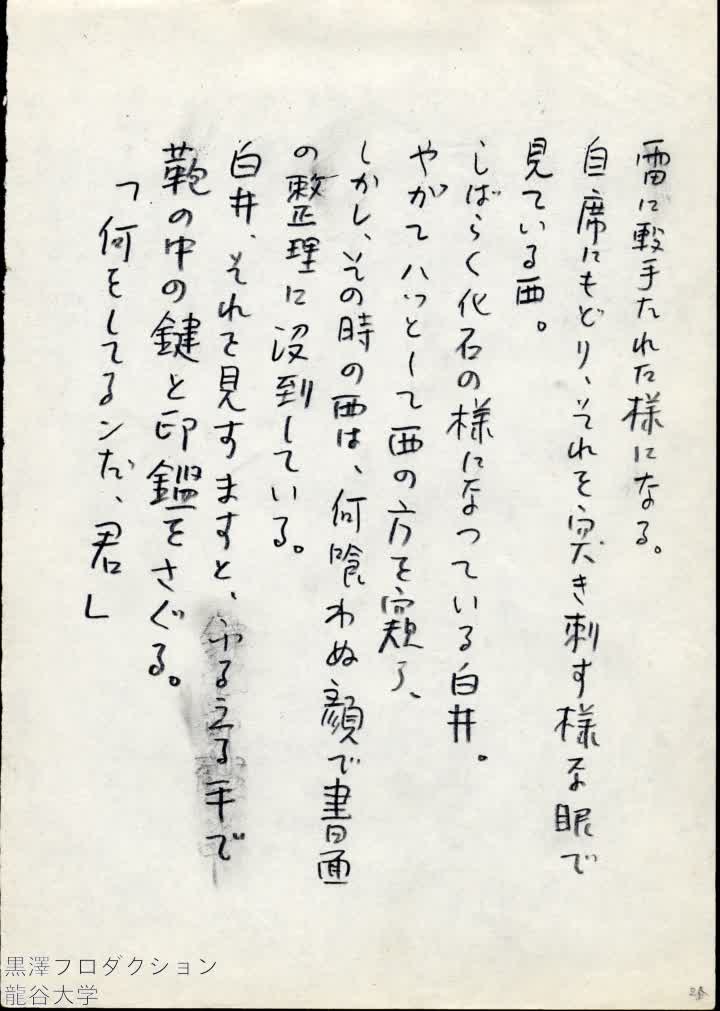 雷に撃たれた様になる。
自席にもどり、それを突き刺す様な眼で
見ている西。
しばらく化石の様になつている白井。
やがてハッとして西の方を窺う、
しかし、その時の西は、何喰わぬ顔で書面
の整理に没到している。
白井、それを見すますと、ふるえる手で
鞄の中の鍵と印鑑をさぐる。
「何をしてるンだ、君」
黒澤プロダクション
龍谷大学